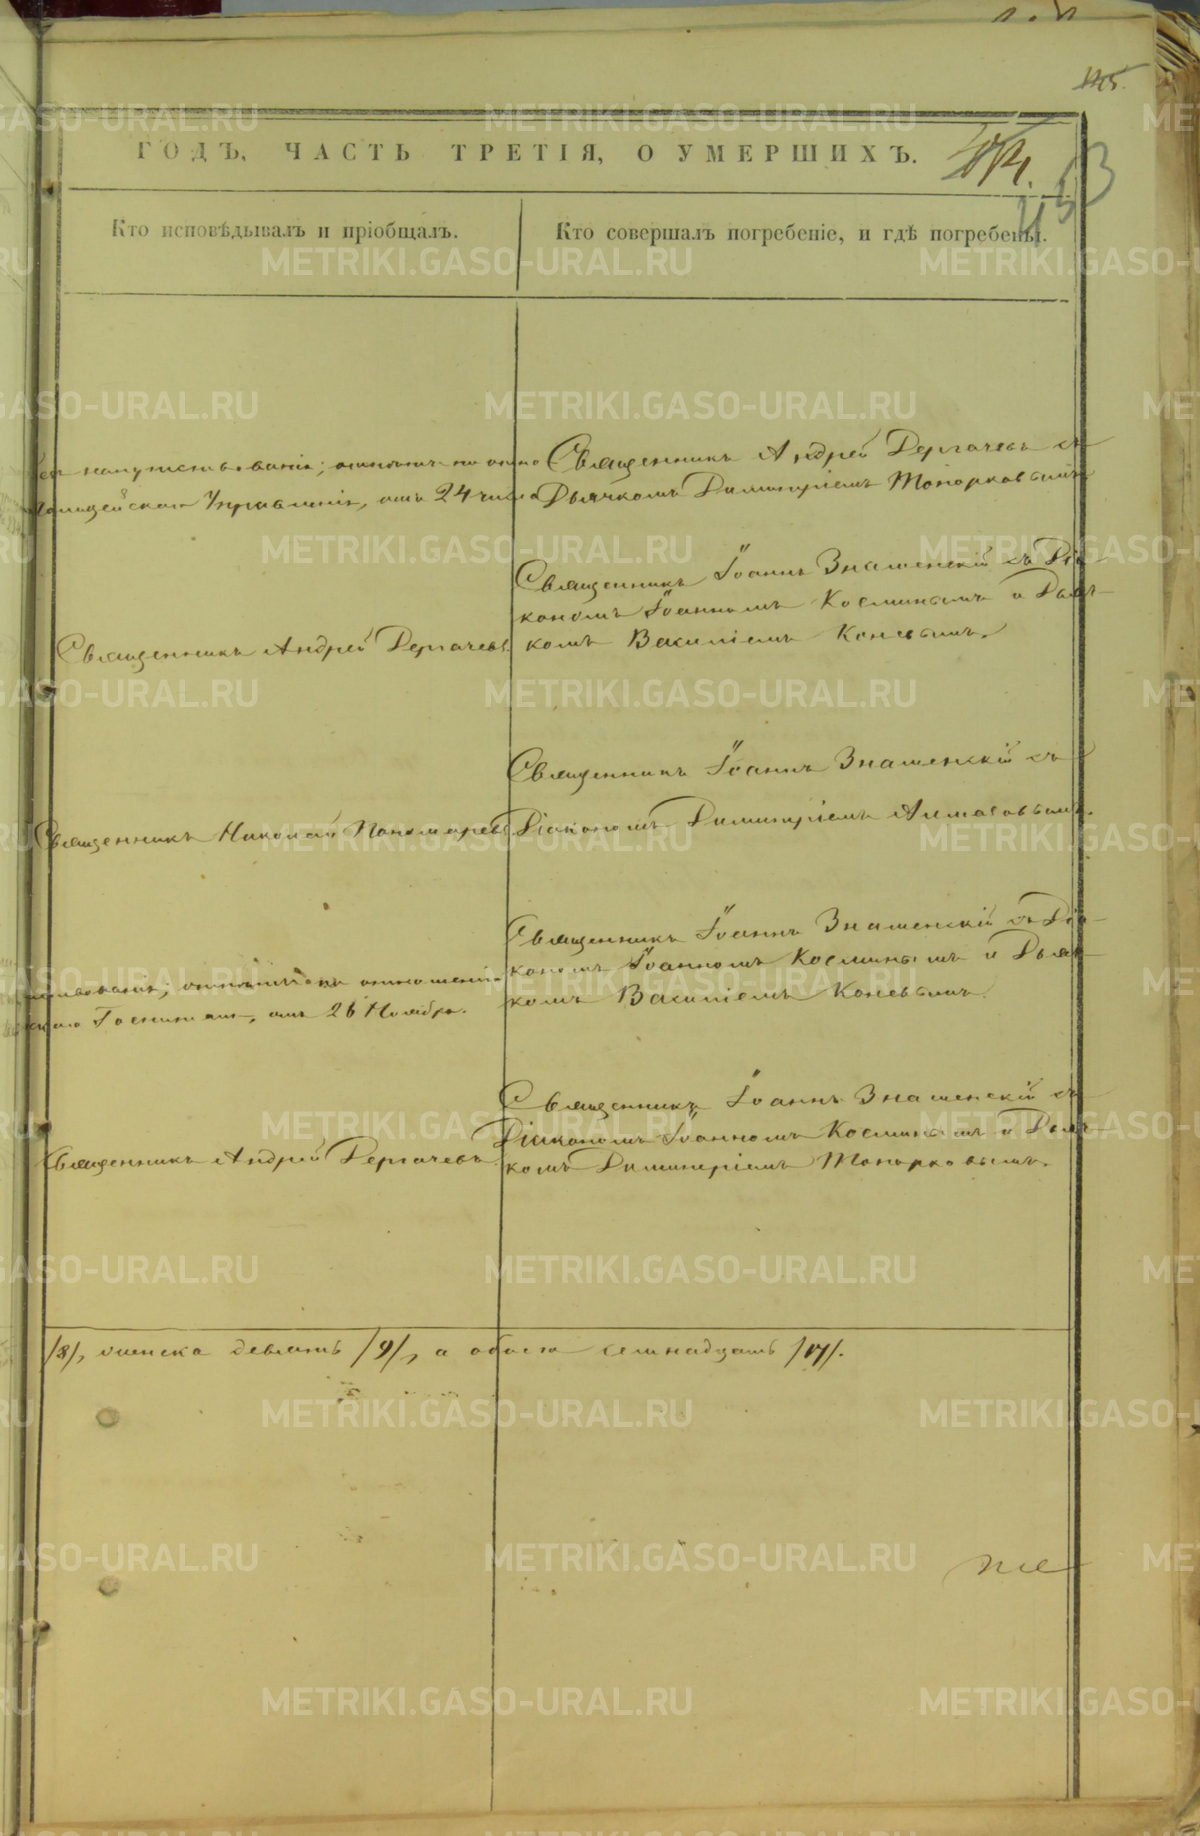 145.
ГОДЪ, ЧАСТЬ ТРЕТІЯ, О УМЕРШИХЪ.
453
Кто исповѣдывалъ и пріобщалъ.
Кто совершалъ погребеніе, и гдѣ погребены.
напутствованія; отпѣтъ по отно
Полицейскаго Управленія, отъ 24 числа
Священникъ Андрей Дергачевъ съ
Дьячкомъ Димитріемъ Топорковымъ
Священникъ Андрей Дергачевъ
Священникъ Іоаннъ Знаменскій съ Діа-
кономъ Іоанномъ Косминымъ и Дьяч-
комъ Василіемъ Коневымъ.
Священникъ Николай Пономаревъ
Священникъ Іоаннъ Знаменскій съ
Діакономъ Димитріемъ Алмазовымъ.
отпѣтъ по отношенію
Госпиталя, отъ 26 Ноября.
Священникъ Іоаннъ Знаменскій съ Діа-
кономъ Іоанномъ Косминымъ и Дьяч-
комъ Василіемъ Коневымъ.
Священникъ Андрей Дергачевъ
Священникъ Іоаннъ Знаменскій съ
Діакономъ Іоанномъ Косминымъ и Дьяч-
комъ Димитріемъ Топорковымъ.
/8/, женска девять /9/, а обоего семнадцать /17/.
METRIKI.GASO-URAL.RU